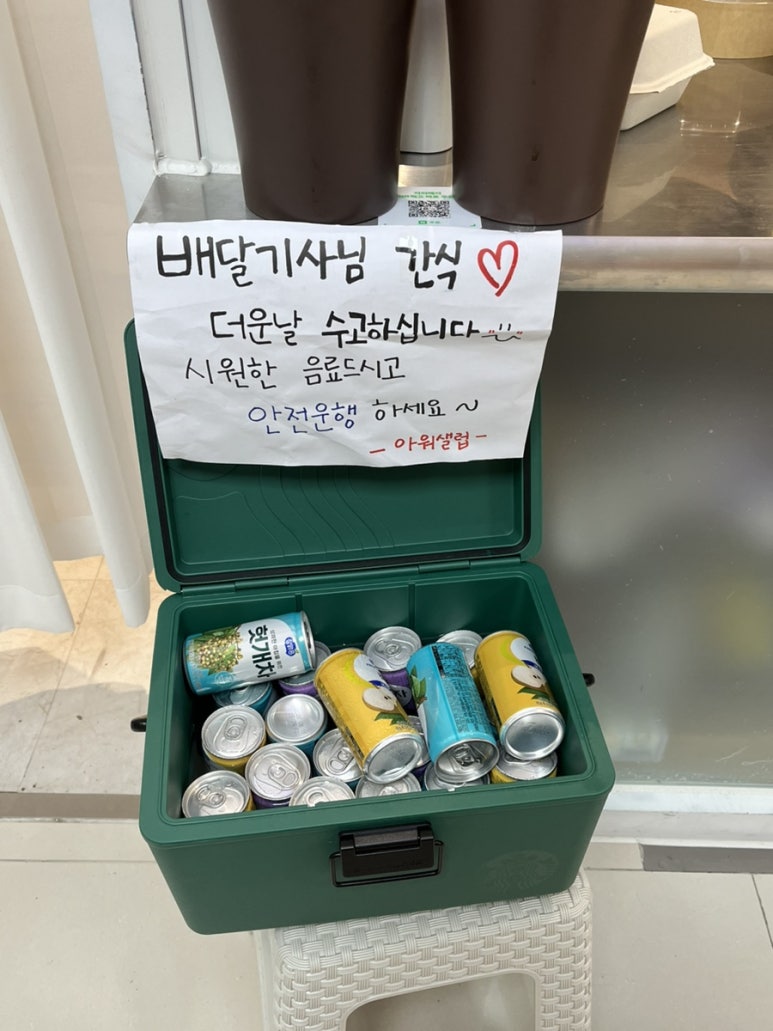 배달기사님 간식
더운날 수고하십니다
시원한 음료드시고
안전운행 하세요~
- 아워샐럽 -
헛개차